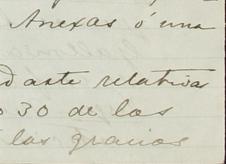 Anexas ó una
d aste relativas
o 30 de los
las gracias